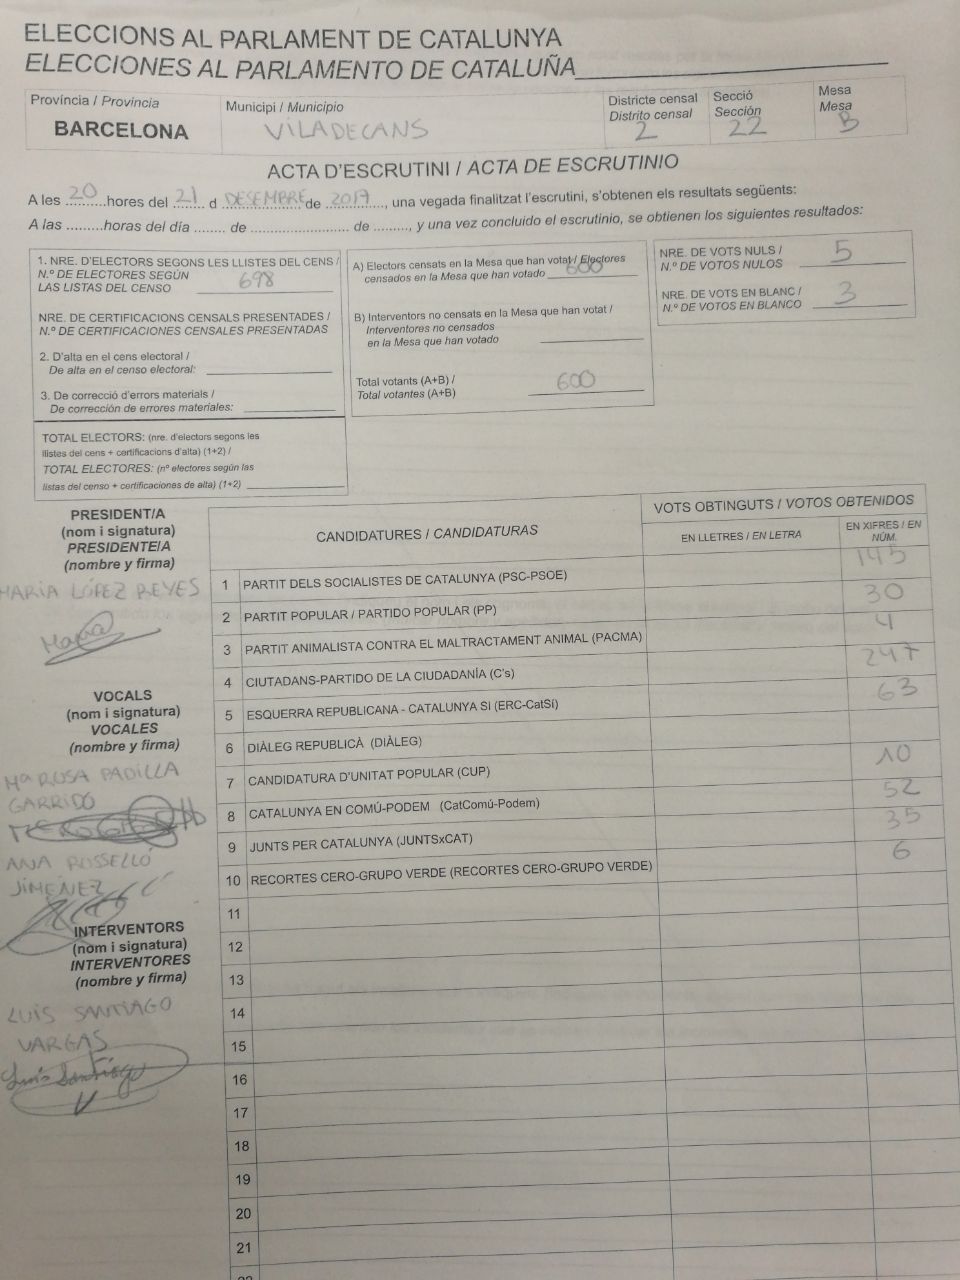 ELECCIONS AL PARLAMENT DE CATALUNYA
ELECCIONES AL PARLAMENTO DE CATALUÑA
Província / Provincia
BARCELONA
Municipi / Municipio
VILADECANS
Districte censal
Distrito censal
2
Secció
Sección
22
Mesa
Mesa
B
ACTA D'ESCRUTINI / ACTA DE ESCRUTINIO
A les 20 hores del 21 d DESEMBRE de 2017, una vegada finalitzat l'escrutini, s'obtenen els resultats següents:
A las .........horas del día ........ de ......................... de ........., y una vez concluido el escrutinio, se obtienen los siguientes resultados:
1. NRE. D'ELECTORS SEGONS LES LLISTES DEL CENS /
N.º DE ELECTORES SEGÚN
LAS LISTAS DEL CENSO 698
NRE. DE CERTIFICACIONS CENSALS PRESENTADES /
N.º DE CERTIFICACIONES CENSALES PRESENTADAS
2. D'alta en el cens electoral /
De alta en el censo electoral:
3. De correcció d'errors materials /
De corrección de errores materiales:
TOTAL ELECTORS: (nre. d'electors segons les
llistes del cens + certificacions d'alta) (1+2) /
TOTAL ELECTORES: (nº electores según las
listas del censo + certificaciones de alta) (1+2)
A) Electors censats en la Mesa que han votat / Electores
censados en la Mesa que han votado 600
B) Interventors no censats en la Mesa que han votat /
Interventores no censados
en la Mesa que han votado
Total votants (A+B) /
Total votantes (A+B) 600
NRE. DE VOTS NULS /
N.º DE VOTOS NULOS 5
NRE. DE VOTS EN BLANC /
N.º DE VOTOS EN BLANCO 3
PRESIDENT/A
(nom i signatura)
PRESIDENTE/A
(nombre y firma)
MARIA LÓPEZ REYES
Maria
VOCALS
(nom i signatura)
VOCALES
(nombre y firma)
Mª ROSA PADILLA
GARRIDO
ANA ROSSELLÓ
JIMÉNEZ
INTERVENTORS
(nom i signatura)
INTERVENTORES
(nombre y firma)
LUIS SANTIAGO
VARGAS
Luis Santiago
V
CANDIDATURES / CANDIDATURAS
VOTS OBTINGUTS / VOTOS OBTENIDOS
EN LLETRES / EN LETRA
EN XIFRES / EN
NÚM.
1 PARTIT DELS SOCIALISTES DE CATALUNYA (PSC-PSOE) 145
2 PARTIT POPULAR / PARTIDO POPULAR (PP) 30
3 PARTIT ANIMALISTA CONTRA EL MALTRACTAMENT ANIMAL (PACMA) 4
4 CIUTADANS-PARTIDO DE LA CIUDADANÍA (C's) 247
5 ESQUERRA REPUBLICANA - CATALUNYA SÍ (ERC-CatSí) 63
6 DIÀLEG REPUBLICÀ (DIÀLEG)
7 CANDIDATURA D'UNITAT POPULAR (CUP) 10
8 CATALUNYA EN COMÚ-PODEM (CatComú-Podem) 52
9 JUNTS PER CATALUNYA (JUNTSxCAT) 35
10 RECORTES CERO-GRUPO VERDE (RECORTES CERO-GRUPO VERDE) 6
11
12
13
14
15
16
17
18
19
20
21